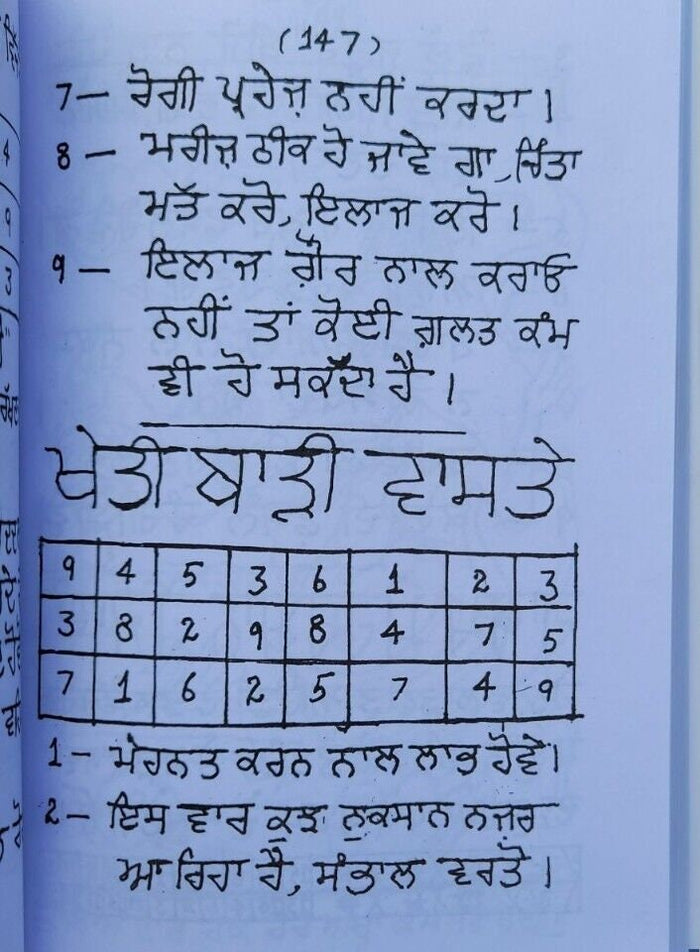 (147)
7— ਰੋਗੀ ਪ੍ਰਹੇਜ਼ ਨਹੀਂ ਕਰਦਾ।
8— ਮਰੀਜ਼ ਠੀਕ ਹੋ ਜਾਵੇ ਗਾ, ਚਿੰਤਾ
ਮੱਤ ਕਰੋ, ਇਲਾਜ ਕਰੋ।
9— ਇਲਾਜ ਗ਼ੌਰ ਨਾਲ ਕਰਾਓ
ਨਹੀਂ ਤਾਂ ਕੋਈ ਗ਼ਲਤ ਕੰਮ
ਵੀ ਹੋ ਸਕੱਦਾ ਹੈ।
ਖੇਤੀ ਬਾੜੀ ਵਾਸਤੇ
9 4 5 3 6 1 2 3
3 8 2 9 8 4 7 5
7 1 6 2 5 7 4 9
1— ਮੇਹਨਤ ਕਰਨ ਨਾਲ ਲਾਭ ਹੋਵੇ।
2— ਇਸ ਵਾਰ ਕੁਝ ਨੁਕਸਾਨ ਨਜ਼ਰ
ਆ ਰਿਹਾ ਹੈ, ਸੰਭਾਲ ਵਰਤੋ।